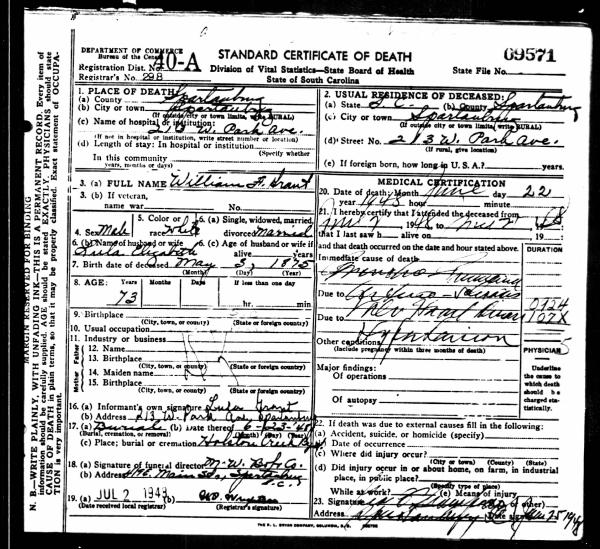 DEPARTMENT OF COMMERCE
Bureau of the Census
STANDARD CERTIFICATE OF DEATH
69571
Registration Dist. No. 40-A
Division of Vital Statistics—State Board of Health
State File No.
Registrar's No. 298
State of South Carolina
MARGIN RESERVED FOR BINDING
N. B.—WRITE PLAINLY, WITH UNFADING INK—THIS IS A PERMANENT RECORD. Every item of
information should be carefully supplied. AGE should be stated EXACTLY. PHYSICIANS should state
CAUSE OF DEATH in plain terms, so that it may be properly classified. Exact statement of OCCUPA-
TION is very important.
1. PLACE OF DEATH
(a) County Spartanburg
(b) City or town Spartanburg
(If outside city or town limits, write RURAL)
(c) Name of hospital or institution:
W. Park Ave.
(If not in hospital or institution, write street number or location)
(d) Length of stay: In hospital or institution
(Specify whether
In this community
years, months or days)
2. USUAL RESIDENCE OF DECEASED:
(a) State S. C. (b) County Spartanburg
(c) City or town Spartanburg
(If outside city or town limits, write RURAL)
(d) Street No. 213 W. Park Ave.
(If rural, give location)
(e) If foreign born, how long in U. S. A.? years.
3. (a) FULL NAME William F. Grant
3. (b) If veteran,
name war No.
4. Sex Male
5. Color or race White
6. (a) Single, widowed, married, divorced Married
6. (b) Name of husband or wife
Lula Elizabeth
6. (c) Age of husband or wife if
alive years
7. Birth date of deceased May 3, 1875
(Month) (Day) (Year)
8. AGE: Years Months Days If less than one day
73 hr. min.
9. Birthplace
(City, town, or county) (State or foreign country)
10. Usual occupation
11. Industry or business
Father
12. Name
13. Birthplace
(City, town, or county) (State or foreign country)
Mother
14. Maiden name
15. Birthplace
(City, town, or county) (State or foreign country)
16. (a) Informant's own signature Lula Grant
(b) Address 213 W. Park Ave, Spartanburg
17. (a) Burial (b) Date thereof 6-23-48
(Burial, cremation, or removal) (Month) (Day) (Year)
(c) Place; burial or cremation Holston Creek
18. (a) Signature of funeral director
(b) Address Main St., Spartanburg
S.C.
19. (a) JUL 2 1948 (b)
(Date received local registrar) (Registrar's signature)
MEDICAL CERTIFICATION
20. Date of death: Month June day 22
year 1948 hour minute
21. I hereby certify that I attended the deceased from
that I last saw h alive on 19
and that death occurred on the date and hour stated above.
DURATION
Immediate cause of death
Broncho-Pneumonia
Due to
0924
Due to
107X
Other conditions Hypertension
(Include pregnancy within three months of death)
PHYSICIAN
Major findings:
Of operations
Of autopsy
Underline
the cause
to which
death should
be
charged sta-
tistically.
22. If death was due to external causes fill in the following:
(a) Accident, suicide, or homicide (specify)
(b) Date of occurrence
(c) Where did injury occur?
(City or town) (County) (State)
(d) Did injury occur in or about home, on farm, in industrial
place, in public place?
(Specify type of place)
While at work? (e) Means of injury
23. Signature (M. D. or other)
Address Spartanburg Date signed